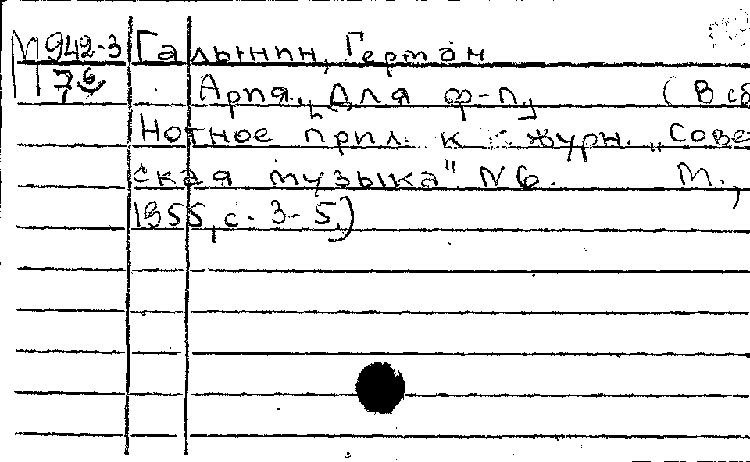 М 942-3 Галынин, Герман
76 Ария, Для ф-п, (В сб
Нотное прил. к журн. „Сове
ская музыка" N 6. М.,
1955, с. 3-5.)